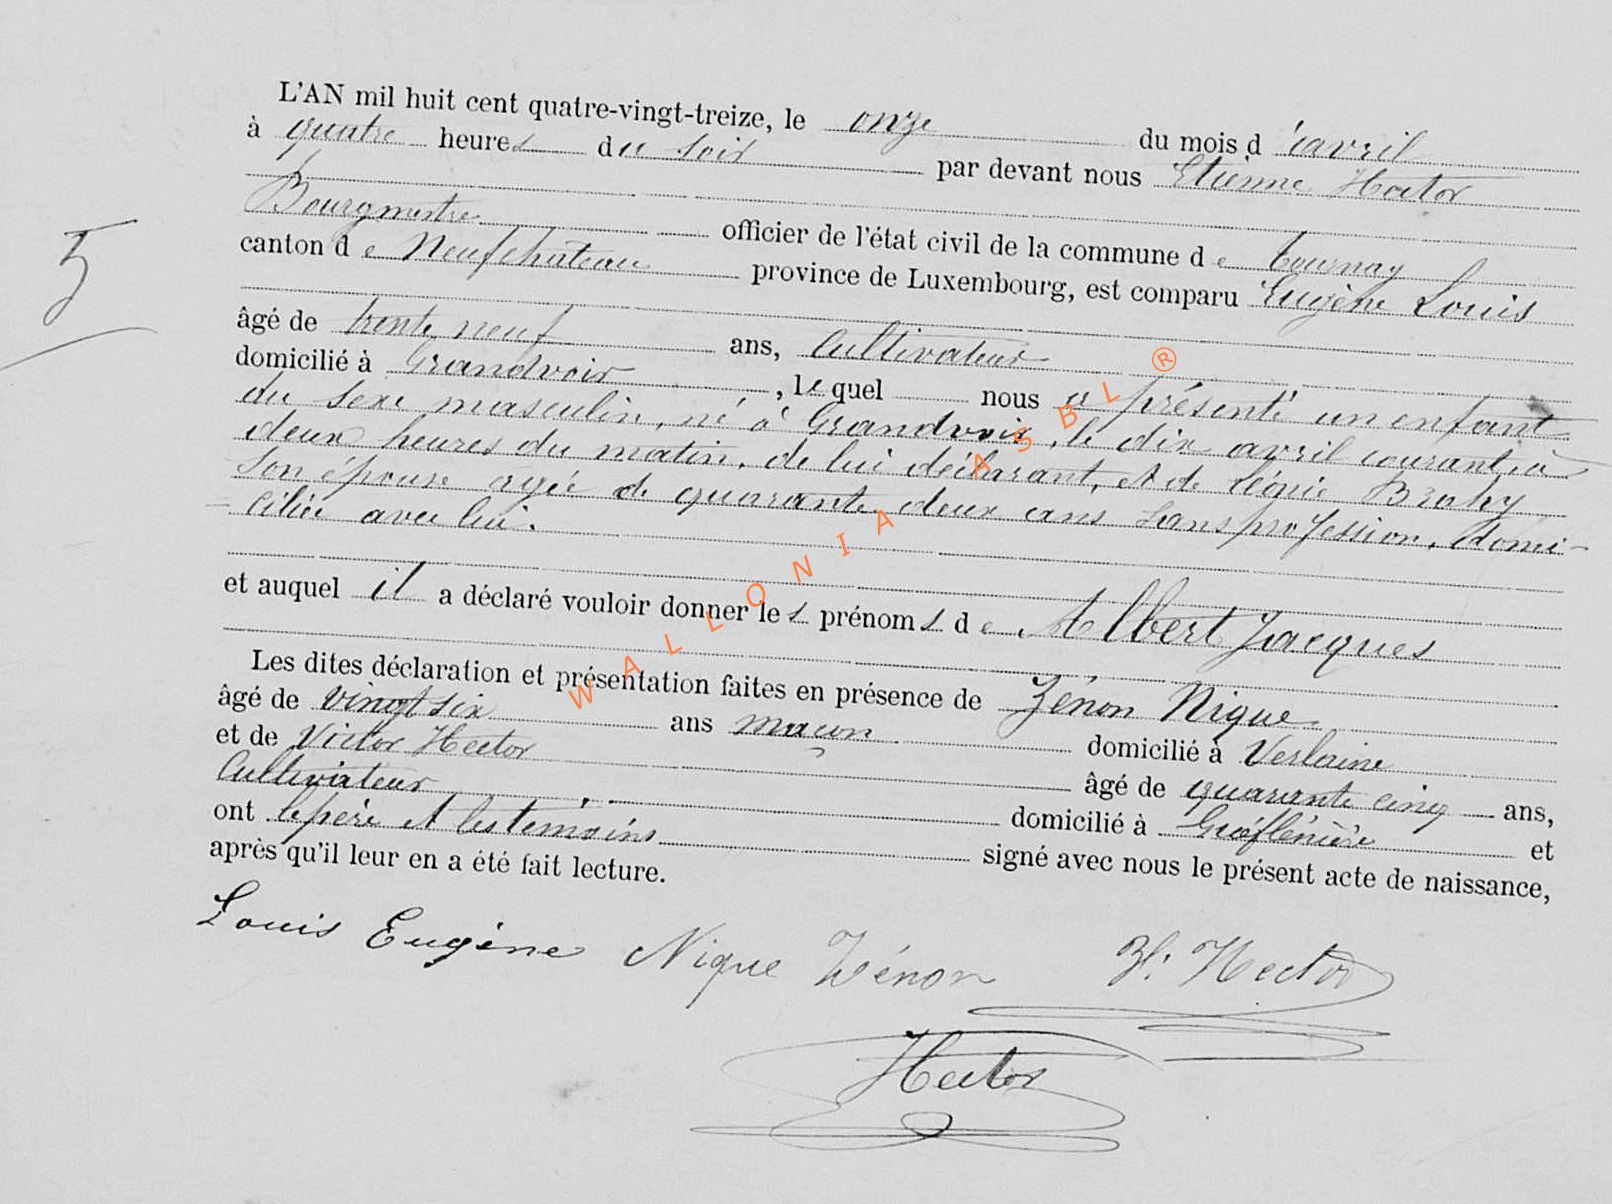 5
L'AN mil huit cent quatre-vingt-treize, le onze du mois d'avril
à quatre heures du soir par devant nous Etienne Hector
Bourgmestre officier de l'état civil de la commune de Tournay
canton de Neufchateau province de Luxembourg, est comparu Eugène Louis
âgé de trente neuf ans, Cultivateur
domicilié à Grandvoir, lequel nous a présenté un enfant
du sexe masculin, né à Grandvoir, le dix avril courant, à
deux heures du matin, de lui déclarant, et de Léonie Brahy
son épouse agée de quarante deux ans sans profession, domi-
-ciliée avec lui.
et auquel il a déclaré vouloir donner les prénoms de Albert Jacques
Les dites déclaration et présentation faites en présence de Zénon Nique
âgé de vingt six ans maçon domicilié à Verlaine
et de Victor Hector âgé de quarante cinq ans,
Cultivateur domicilié à et
ont le père et les témoins signé avec nous le présent acte de naissance,
après qu'il leur en a été fait lecture.
Louis Eugène Nique Zénon Hector
Hector
WALLONIA ASBL ®